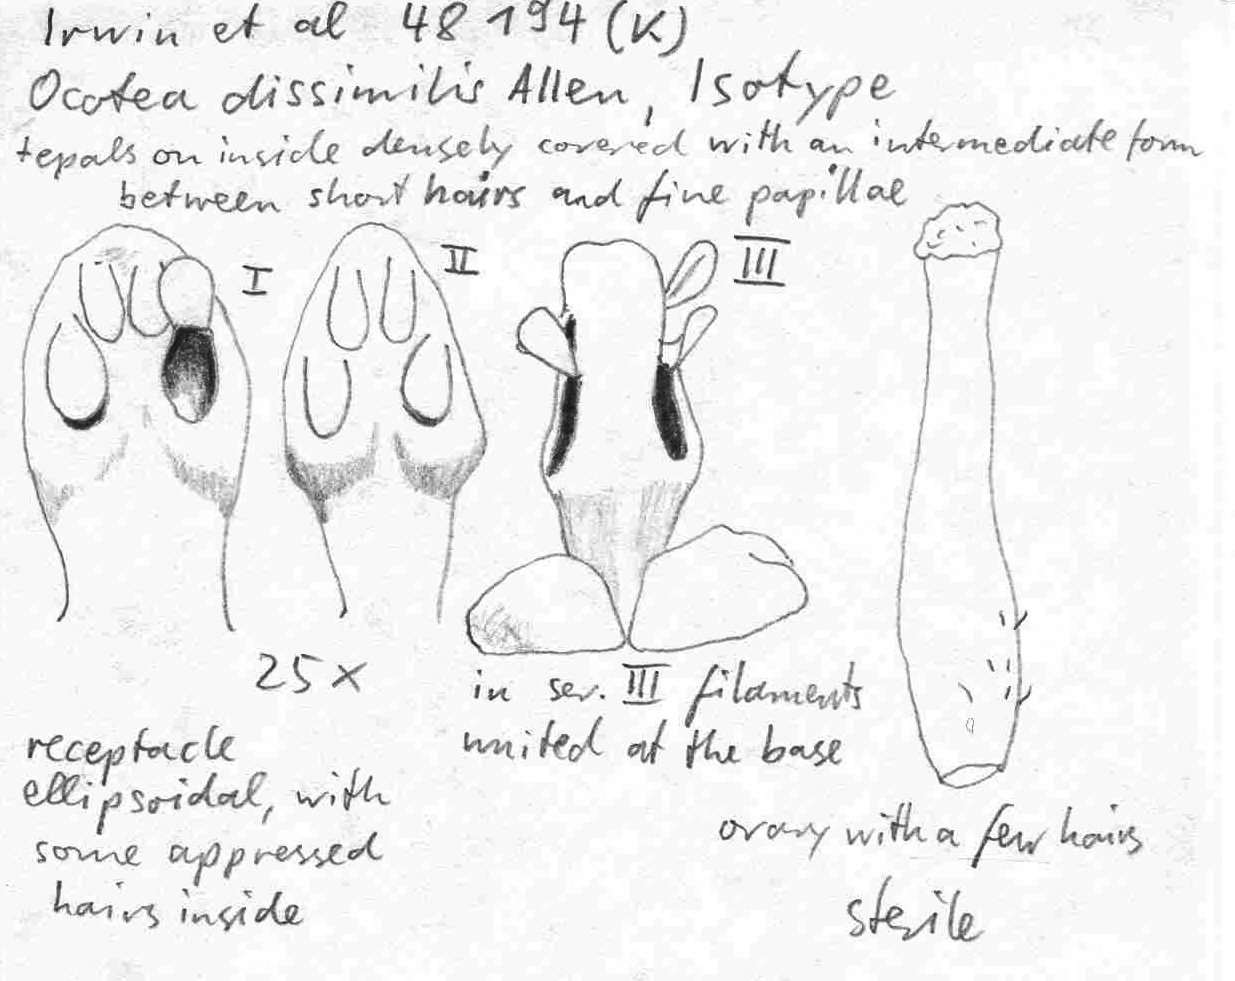 Irwin et al 48194 (K)
Ocotea dissimilis Allen, Isotype
tepals on inside densely covered with an intermediate form
between short hairs and fine papillae
I
II
III
25 x
in ser. III filaments
united at the base
receptacle
ellipsoidal, with
some appressed
hairs inside
ovary with a few hairs
sterile